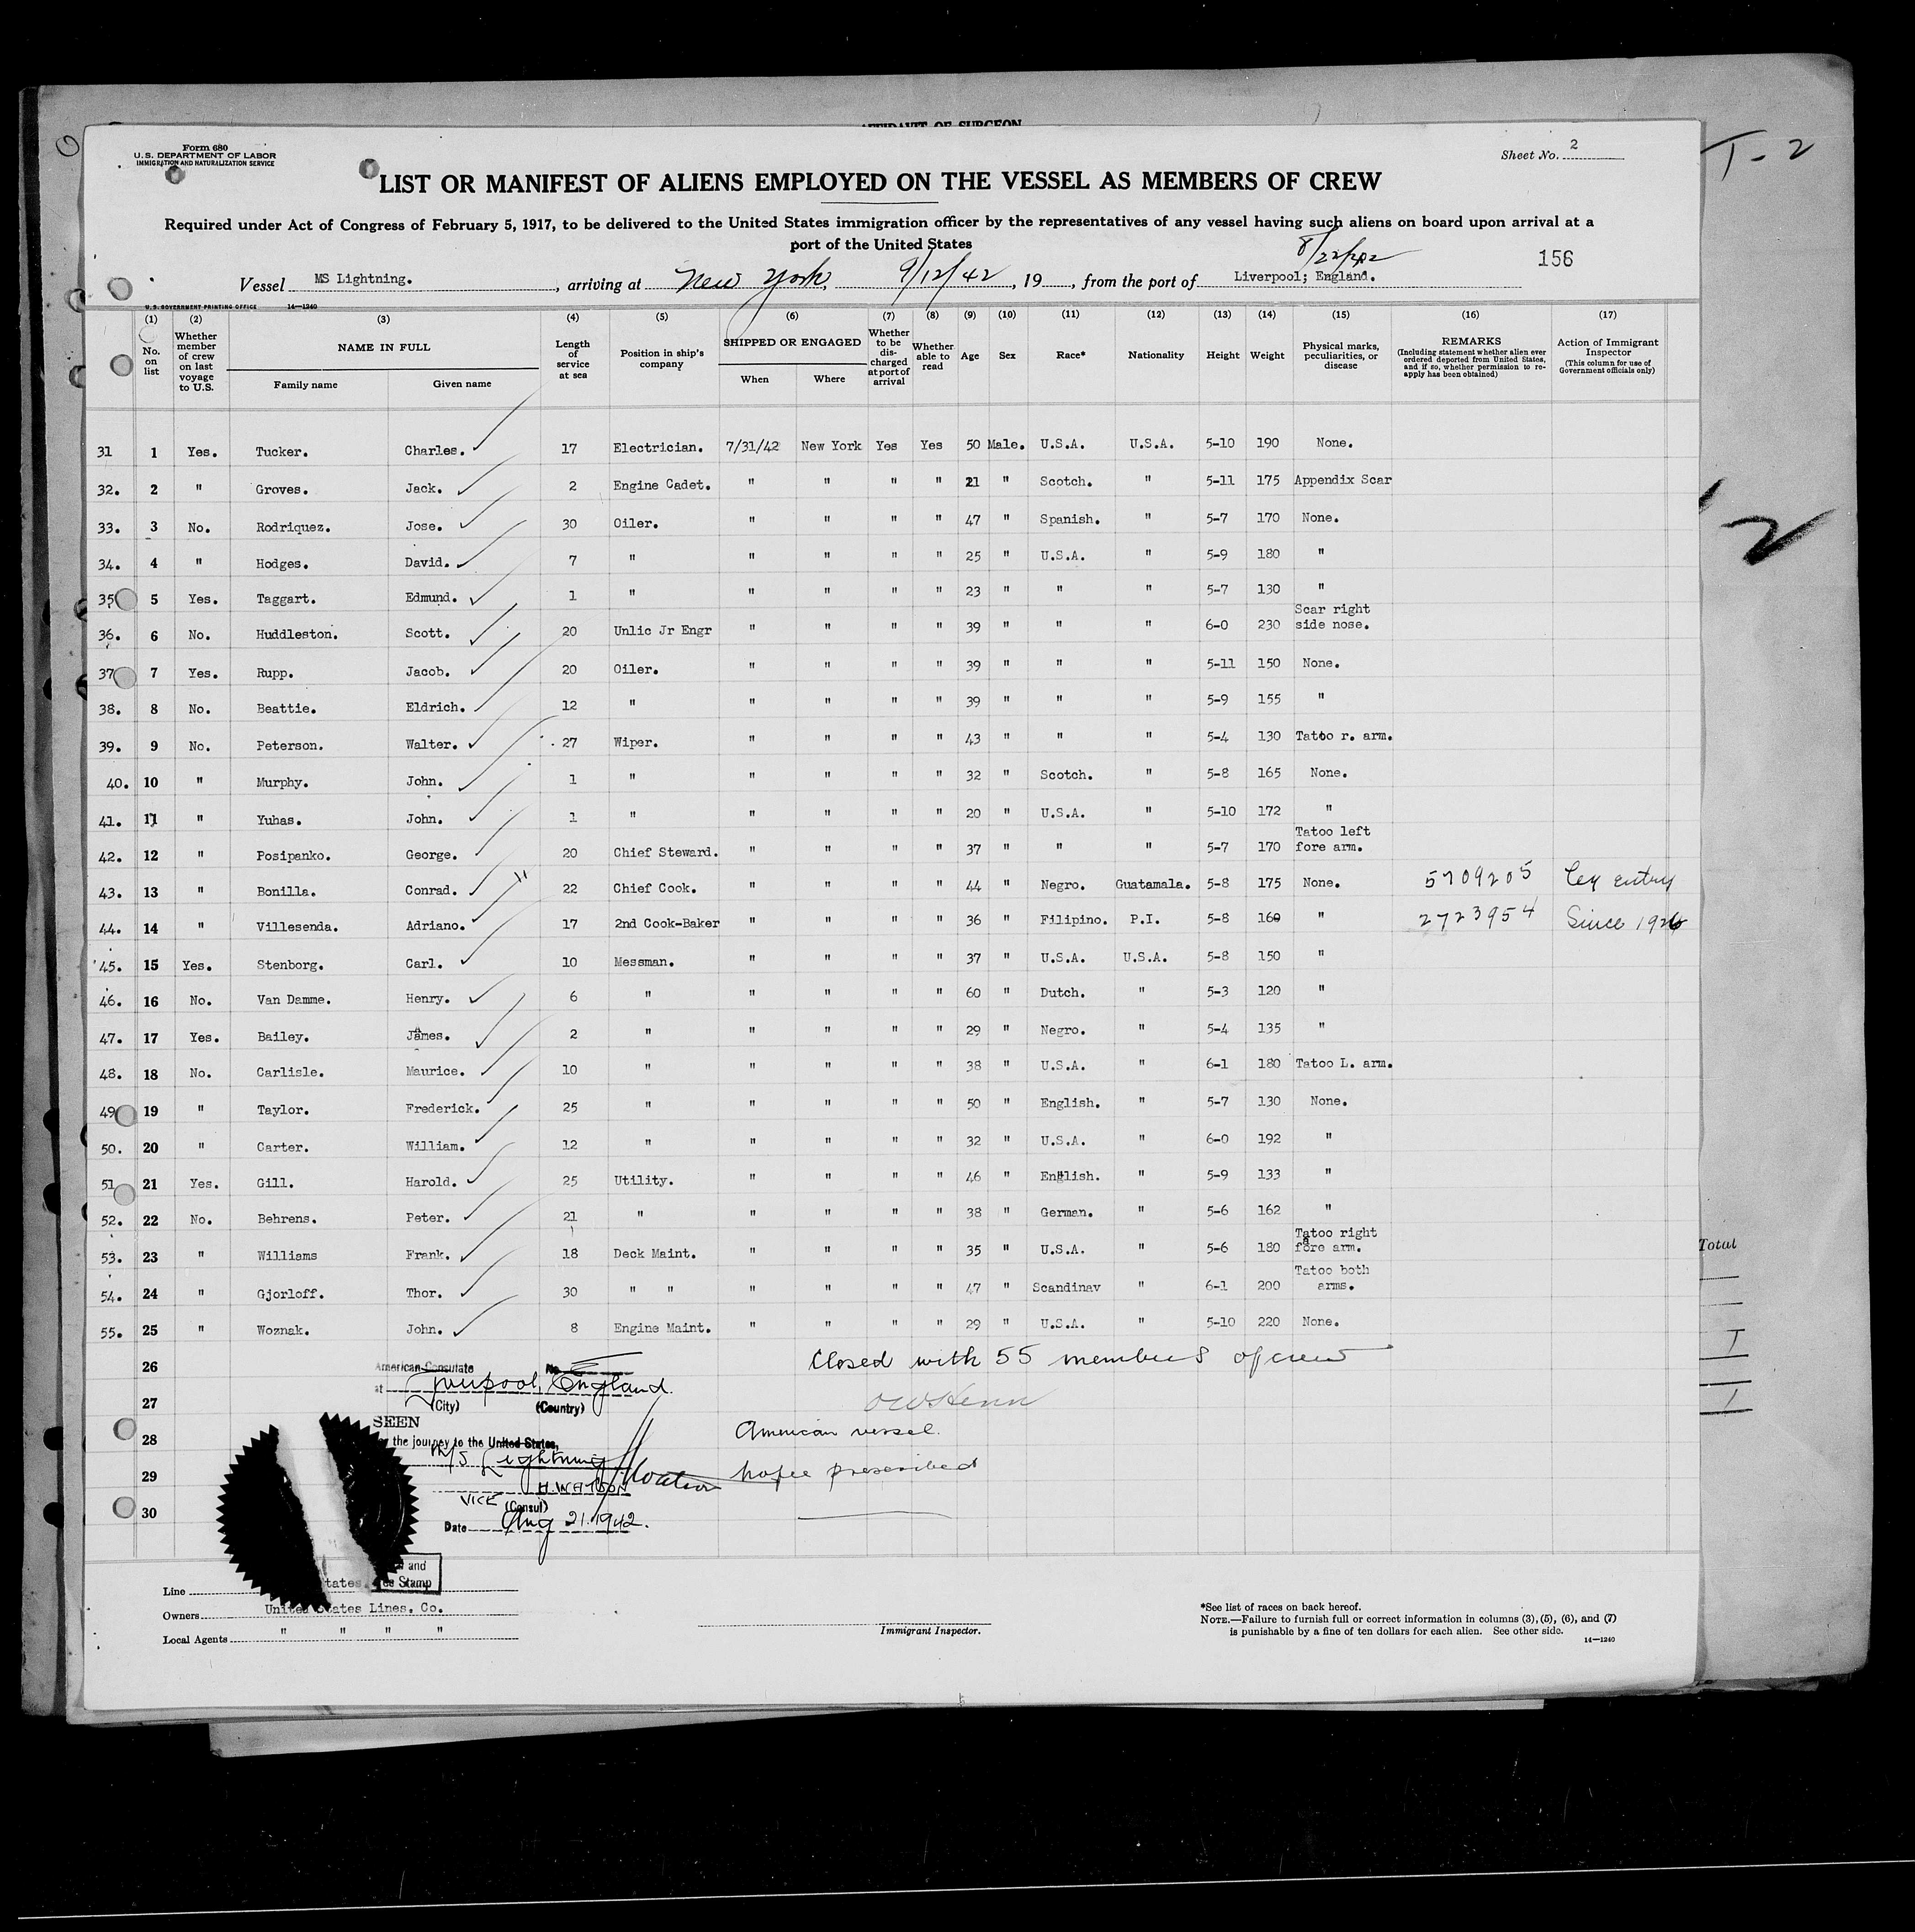 AFFIDAVIT OF SURGEON
Form 680
U.S. DEPARTMENT OF LABOR
IMMIGRATION AND NATURALIZATION SERVICE
Sheet No. 2
T-2
LIST OR MANIFEST OF ALIENS EMPLOYED ON THE VESSEL AS MEMBERS OF CREW
Required under Act of Congress of February 5, 1917, to be delivered to the United States immigration officer by the representatives of any vessel having such aliens on board upon arrival at a
port of the United States
8/22/42
156
Vessel MS Lightning. , arriving at New York, 9/12/42 , 19 , from the port of Liverpool; England.
U.S. GOVERNMENT PRINTING OFFICE 14—1240
(1) (2) (3) (4) (5) (6) (7) (8) (9) (10) (11) (12) (13) (14) (15) (16) (17)
No. on list
Whether member of crew on last voyage to U.S.
NAME IN FULL
Family name Given name
Length of service at sea
Position in ship's company
SHIPPED OR ENGAGED
When Where
Whether to be discharged at port of arrival
Whether able to read
Age Sex Race* Nationality Height Weight
Physical marks, peculiarities, or disease
REMARKS
(Including statement whether alien ever ordered deported from United States, and if so, whether permission to reapply has been obtained)
Action of Immigrant Inspector
(This column for use of Government officials only)
31 1 Yes. Tucker. Charles. 17 Electrician. 7/31/42 New York Yes Yes 50 Male. U.S.A. U.S.A. 5-10 190 None.
32. 2 " Groves. Jack. 2 Engine Cadet. " " " " 21 " Scotch. " 5-11 175 Appendix Scar
33. 3 No. Rodriquez. Jose. 30 Oiler. " " " " 47 " Spanish. " 5-7 170 None.
34. 4 " Hodges. David. 7 " " " " " 25 " U.S.A. " 5-9 180 "
35. 5 Yes. Taggart. Edmund. 1 " " " " " 23 " " " 5-7 130 "
36. 6 No. Huddleston. Scott. 20 Unlic Jr Engr " " " " 39 " " " 6-0 230 Scar right side nose.
37 7 Yes. Rupp. Jacob. 20 Oiler. " " " " 39 " " " 5-11 150 None.
38. 8 No. Beattie. Eldrich. 12 " " " " " 39 " " " 5-9 155 "
39. 9 No. Peterson. Walter. 27 Wiper. " " " " 43 " " " 5-4 130 Tatoo r. arm.
40. 10 " Murphy. John. 1 " " " " " 32 " Scotch. " 5-8 165 None.
41. 11 " Yuhas. John. 1 " " " " " 20 " U.S.A. " 5-10 172 "
42. 12 " Posipanko. George. 20 Chief Steward. " " " " 37 " " " 5-7 170 Tatoo left fore arm.
43. 13 " Bonilla. Conrad. 22 Chief Cook. " " " " 44 " Negro. Guatamala. 5-8 175 None. 5709205 Ley entry
44. 14 " Villesenda. Adriano. 17 2nd Cook-Baker " " " " 36 " Filipino. P.I. 5-8 160 " 2723954 Since 1926
45. 15 Yes. Stenborg. Carl. 10 Messman. " " " " 37 " U.S.A. U.S.A. 5-8 150 "
46. 16 No. Van Damme. Henry. 6 " " " " " 60 " Dutch. " 5-3 120 "
47. 17 Yes. Bailey. James. 2 " " " " " 29 " Negro. " 5-4 135 "
48. 18 No. Carlisle. Maurice. 10 " " " " " 38 " U.S.A. " 6-1 180 Tatoo L. arm.
49 19 " Taylor. Frederick. 25 " " " " " 50 " English. " 5-7 130 None.
50. 20 " Carter. William. 12 " " " " " 32 " U.S.A. " 6-0 192 "
51 21 Yes. Gill. Harold. 25 Utility. " " " " 46 " English. " 5-9 133 "
52. 22 No. Behrens. Peter. 21 " " " " " 38 " German. " 5-6 162 "
53. 23 " Williams Frank. 18 Deck Maint. " " " " 35 " U.S.A. " 5-6 180 Tatoo right fore arm.
54. 24 " Gjorloff. Thor. 30 " " " " " " 47 " Scandinav " 6-1 200 Tatoo both arms.
55. 25 " Woznak. John. 8 Engine Maint. " " " " 29 " U.S.A. " 5-10 220 None.
2
Total
26
27
28
29
30
Closed with 55 members of crew
American vessel.
No fee prescribed
American Consulate No.
at Liverpool, England.
(City) (Country)
SEEN
the journey to the United States,
M/S Lightning
H. WATSON
VICE (Consul)
Date Aug 21. 1942.
and
Stamp
Line tates
Owners United States Lines. Co.
Local Agents " " " "
Immigrant Inspector.
*See list of races on back hereof.
NOTE.—Failure to furnish full or correct information in columns (3), (5), (6), and (7)
is punishable by a fine of ten dollars for each alien. See other side.
14—1240